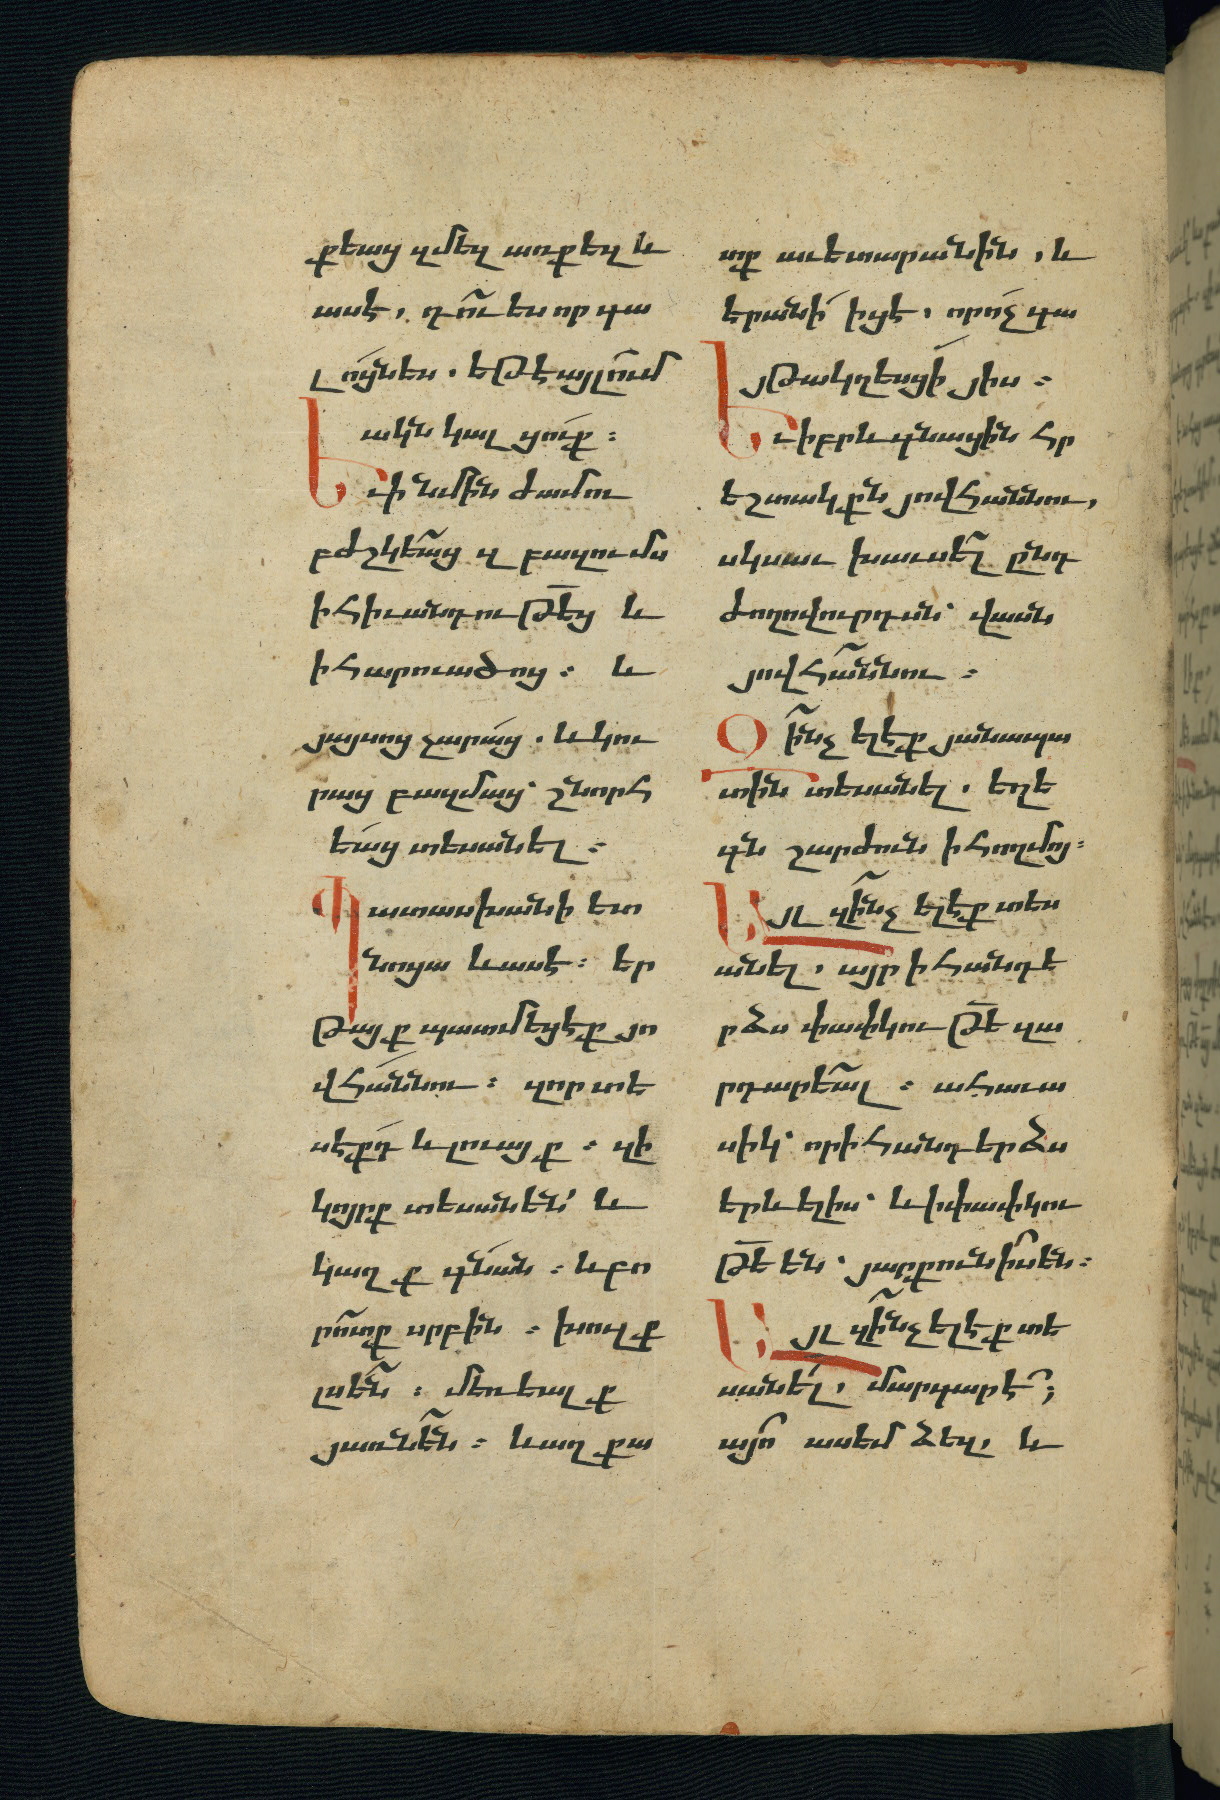 քեաց զմեզ առքեզ և
ասէ, դո՞ւ ես որ գա
լո́ցնես. եթէ այլո՞ւմ
ակն կալ ցո́ւք։
Եւ ի նմին ժամու
բժշկեա՞ց զ բազումս
ի հիւանդութ̅եց և
ի հարուածոց։ և
յայսոց չարա́ց. և կու
րաց բազմաց՝ շնորհ
եա́ց տեսանել։
Պատասխանի ետ
նոցա և ասէ։ եր
թայք պատմեցէք յո
վհա́ննու։ զոր տե
սէքդ և լուայք։ զի
կոյրք տեսանեն՛ և
կաղք գնան։ և բո
րո՞տք սրբին։ խուլք
լսե՞ն։ մեռեալք
յառնե՞ն։ և աղքա
տք աւետարանին, և
երանի́ իցէ, որո́չ գա
յթակղեսցի́ յիս։
Եւ իբրև գնացին հր
եշտակքն յովհաննու,
սկսաւ խաւսե՞լ ընդ
ժողովուրդսն՝ վասն
յովհա՞ննու։
Զի՞նչ ելէք յանապա
տին տեսանել, եղէ
գն շարժուն ի հողմոյ։
Այլ զի՞նչ ելէք տես
անել, այր ի հանդե
րձս փափկութ̅ե զա
րդարեա՞լ։ ահաւա
սիկ՝ որ ի հանդերձս
երևելիս՝ և ի փափկու
թ̅ե են՝ յարքունի՞ս են։
Այլ զի՞նչ ելէք տե
սանե́լ, մարգարէ՞;
այո՞ ասեմ ձեզ, և